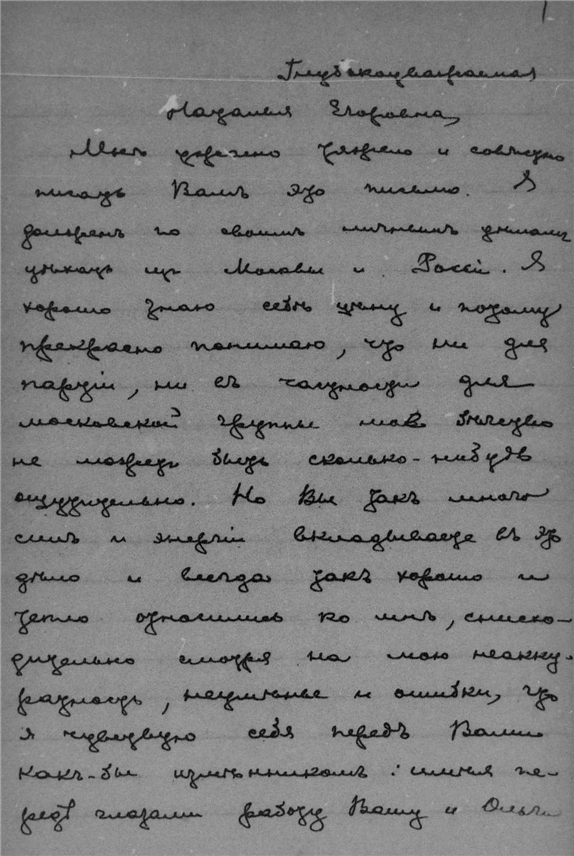 Глубокоуважаемая
Наталья Егоровна,
Мнѣ ужасно тяжело и совѣстно
писать Вамъ это письмо. Я
долженъ по своимъ личнымъ дѣламъ
уѣхать изъ Москвы и Россіи. Я
хорошо знаю себѣ цѣну и потому
прекрасно понимаю, что ни для
партіи, ни въ частности для
московской группы мое бѣгство
не можетъ быть сколько-нибудь
ощутительно. Но Вы такъ много
силъ и энергіи вкладываете въ это
дѣло и всегда такъ хорошо и
тепло относились ко мнѣ, снисхо-
дительно смотря на мою неакку-
ратность, неумѣнье и ошибки, что
я чувствую себя передъ Вами
какъ-бы измѣнникомъ: имѣя пе-
редъ глазами работу Вашу и Ольги